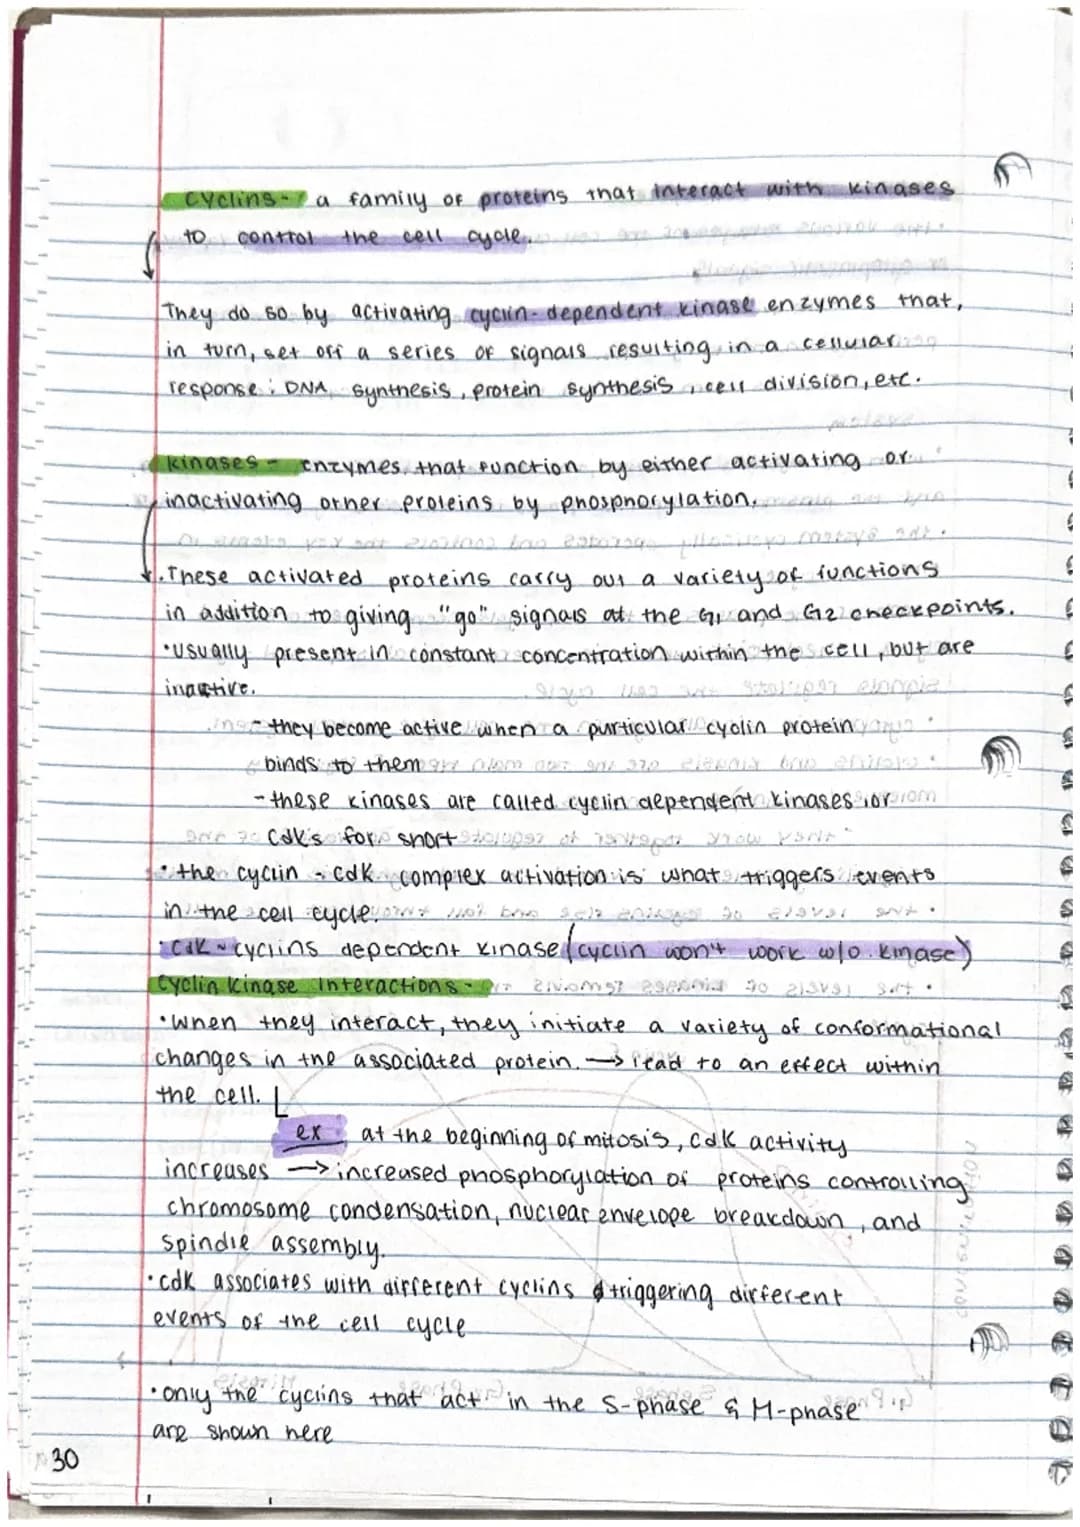 Cyclins- a family of proteins that interact with kinases
to control the cell cycle.
They do so by activating cyclin-dependent kinase enzymes that,
in turn, set off a series of signals resulting in a cellular
response: DNA synthesis, protein synthesis, cell division, etc.
kinases - enzymes that function by either activating or
inactivating other proteins by phosphorylation.
.These activated proteins carry out a variety of functions
in addition to giving "go" signals at the G1 and G2 checkpoints.
•usually present in constant concentration within the cell, but are
inactive.
- they become active when a particular cyclin protein
binds to them
- these kinases are called cyclin dependent kinases, or
Cdk's for short
• the cyclin - cdk complex activation is what triggers events
in the cell cycle.
•Cdk ~ cyclins dependent kinase (cyclin won't work w/o kinase)
Cyclin Kinase Interactions-
•When they interact, they initiate a variety of conformational
changes in the associated protein. → lead to an effect within
the cell.
ex at the beginning of mitosis, cdk activity
increases → increased phosphorylation of proteins controlling
chromosome condensation, nuclear envelope breakdown, and
spindle assembly.
•cdk associates with different cyclins triggering different
events of the cell cycle
•only the cyclins that act in the S-phase & M-phase
are shown here
30